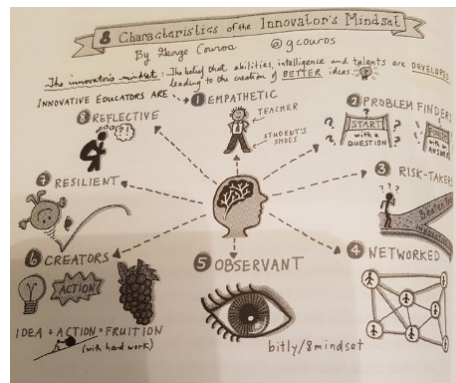 8 Characteristics of the Innovator's Mindset
By George Couros @gcouros
The innovator's mindset: The belief that abilities, intelligence and talents are DEVELOPED
leading to the creation of BETTER ideas.
INNOVATIVE EDUCATORS ARE
1 EMPATHETIC
TEACHER
STUDENT'S
SHOES
2 PROBLEM FINDERS
START
with a
QUESTION
with an
ANSWER
3 RISK-TAKERS
Beaten
4 NETWORKED
5 OBSERVANT
6 CREATORS
ACTION
IDEA + ACTION = FRUITION
(with hard work)
7 RESILIENT
8 REFLECTIVE
bitly/8mindset